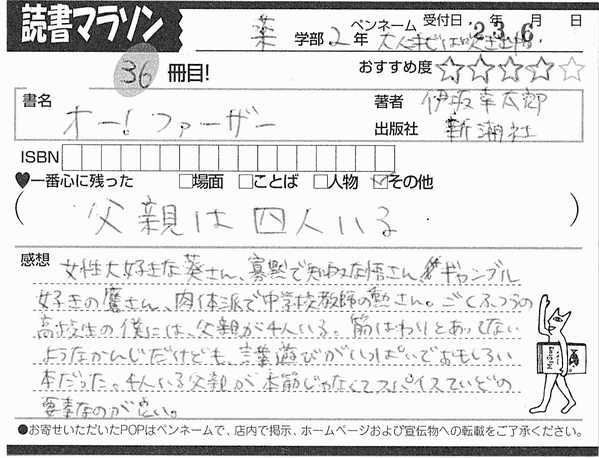 読書マラソン
薬 学部 2 年 ペンネーム 受付日 23年 6月 日
36 冊目!
おすすめ度 ★★★★☆
書名 オー!ファーザー
著者 伊坂幸太郎
出版社 新潮社
ISBN
♥一番心に残った □場面 □ことば □人物 ☑その他
(父親は四人いる)
感想 女性大好きな葵さん、寡黙で知的な悟さん ギャンブル
好きの鷹さん、肉体派で中学校教師の勲さん。ごくふつうの
高校生の僕には、父親が4人いる。筋はわりとあってない
ようなかんじだけども、言葉遊びがいっぱいでおもしろい
本だった。4人いる父親が本筋じゃなくてスパイスていどの
要素なのが良い。
●お寄せいただいたPOPはペンネームで、店内で掲示、ホームページおよび宣伝物への転載をご了承ください。